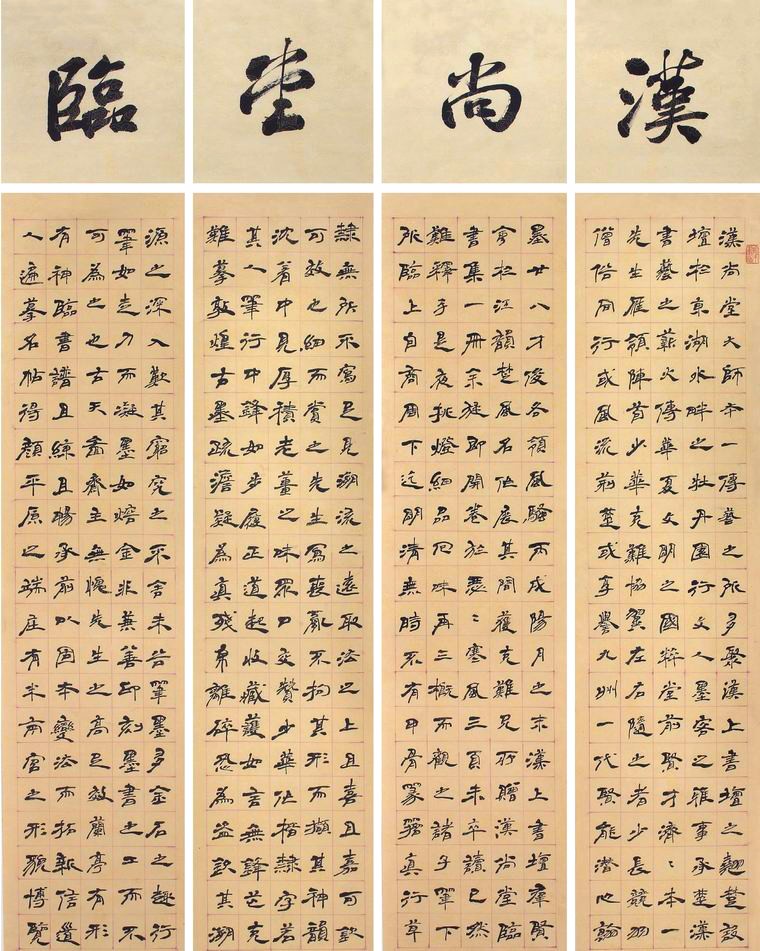 漢尚堂臨
漢尚堂大師本一傳善之所多聚漢上書壇之翹楚設
壇松東湖水畔之牡丹園行文人墨客之雅事承楚漢
書藝之薪火傳華夏文明之國粹堂前賢才濟〻本
先生雁領陣首少華克難協翼左右隨之者少長競一
僧俗間行或風流前楚或享譽九州一代賢能潛心翰
墨廿八才俊各領風騷丙戌陽月之末漢上書壇群賢
會松江韻楚風名作展其間獲克難兄所贈漢尚堂臨
書集一冊余旋即開卷於瑟〻寒風三頁未卒讀已然
難釋手是夜挑燈細品再三概而觀之諸子筆下
所臨上自商周下迄明清無時不有甲骨篆籀真行草
隸無所不寫足見溯流之遠取法之上且喜且嘉可欽
可效也細而賞之先生寫喪亂不拘其形而擷其神韻
沈著中見厚積老薑之味眾口交贊少華作楷隸字若
其人筆行中鋒如步履正道起收藏護如言無鋒芒克
難摹敦煌古墨疏澹凝為真殘帛離碎恐為益欽其溯
源之深入歎其窮究之采舍未筆墨多金石之趣行
筆如走刀而凝墨如熔金非兼善即刻墨書之工而不
可為之也古天齋主無愧先生之高足效蘭亭有形
有神臨書譜且練且暢承前以固本變法而拓新信遵
人遍摹名帖得顏平原之端莊有米南宮之形貌博覽